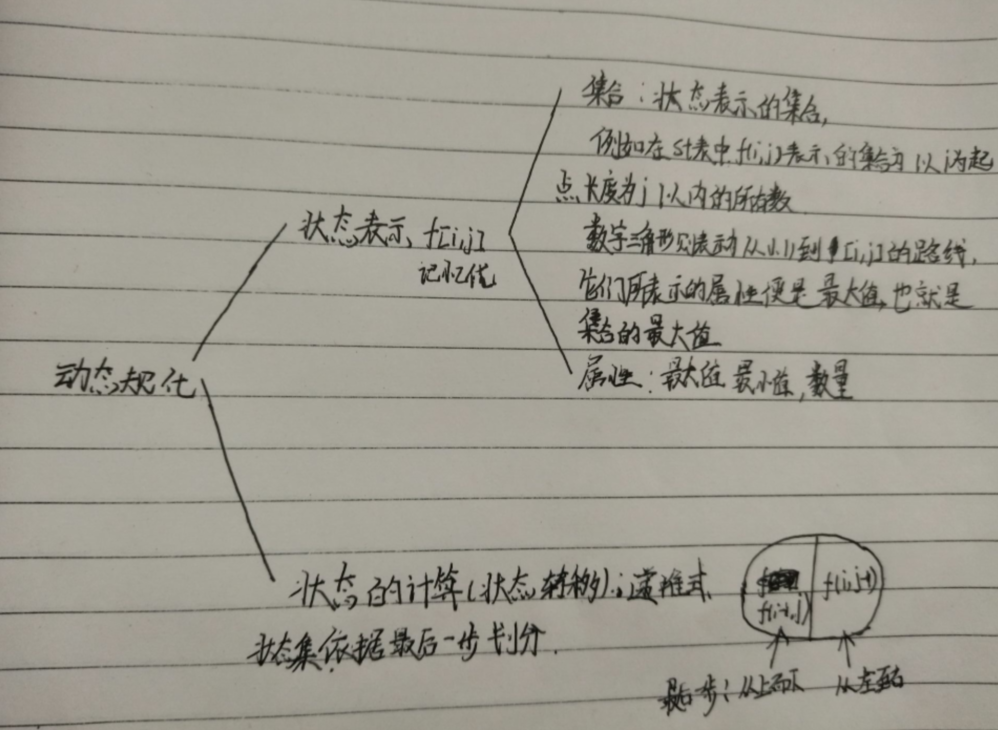 集合：状态表示的集合,
例如在st表中f(i,j)表示的集合为以i为起
点长度为j以内的所有数
状态表示 f[i,j]
数字三角形则表示从(1,1)到[i,j]的路线,
记忆优
它们所表示的属性便是最大值,也就是
集合的最大值
动态规化
属性：最大值 最小值,数量
状态的计算(状态转移)：递推式
f(i-1,j)
f(i,j-1)
状态集依据最后一步划分.
最后一步：从上而下 从左至右